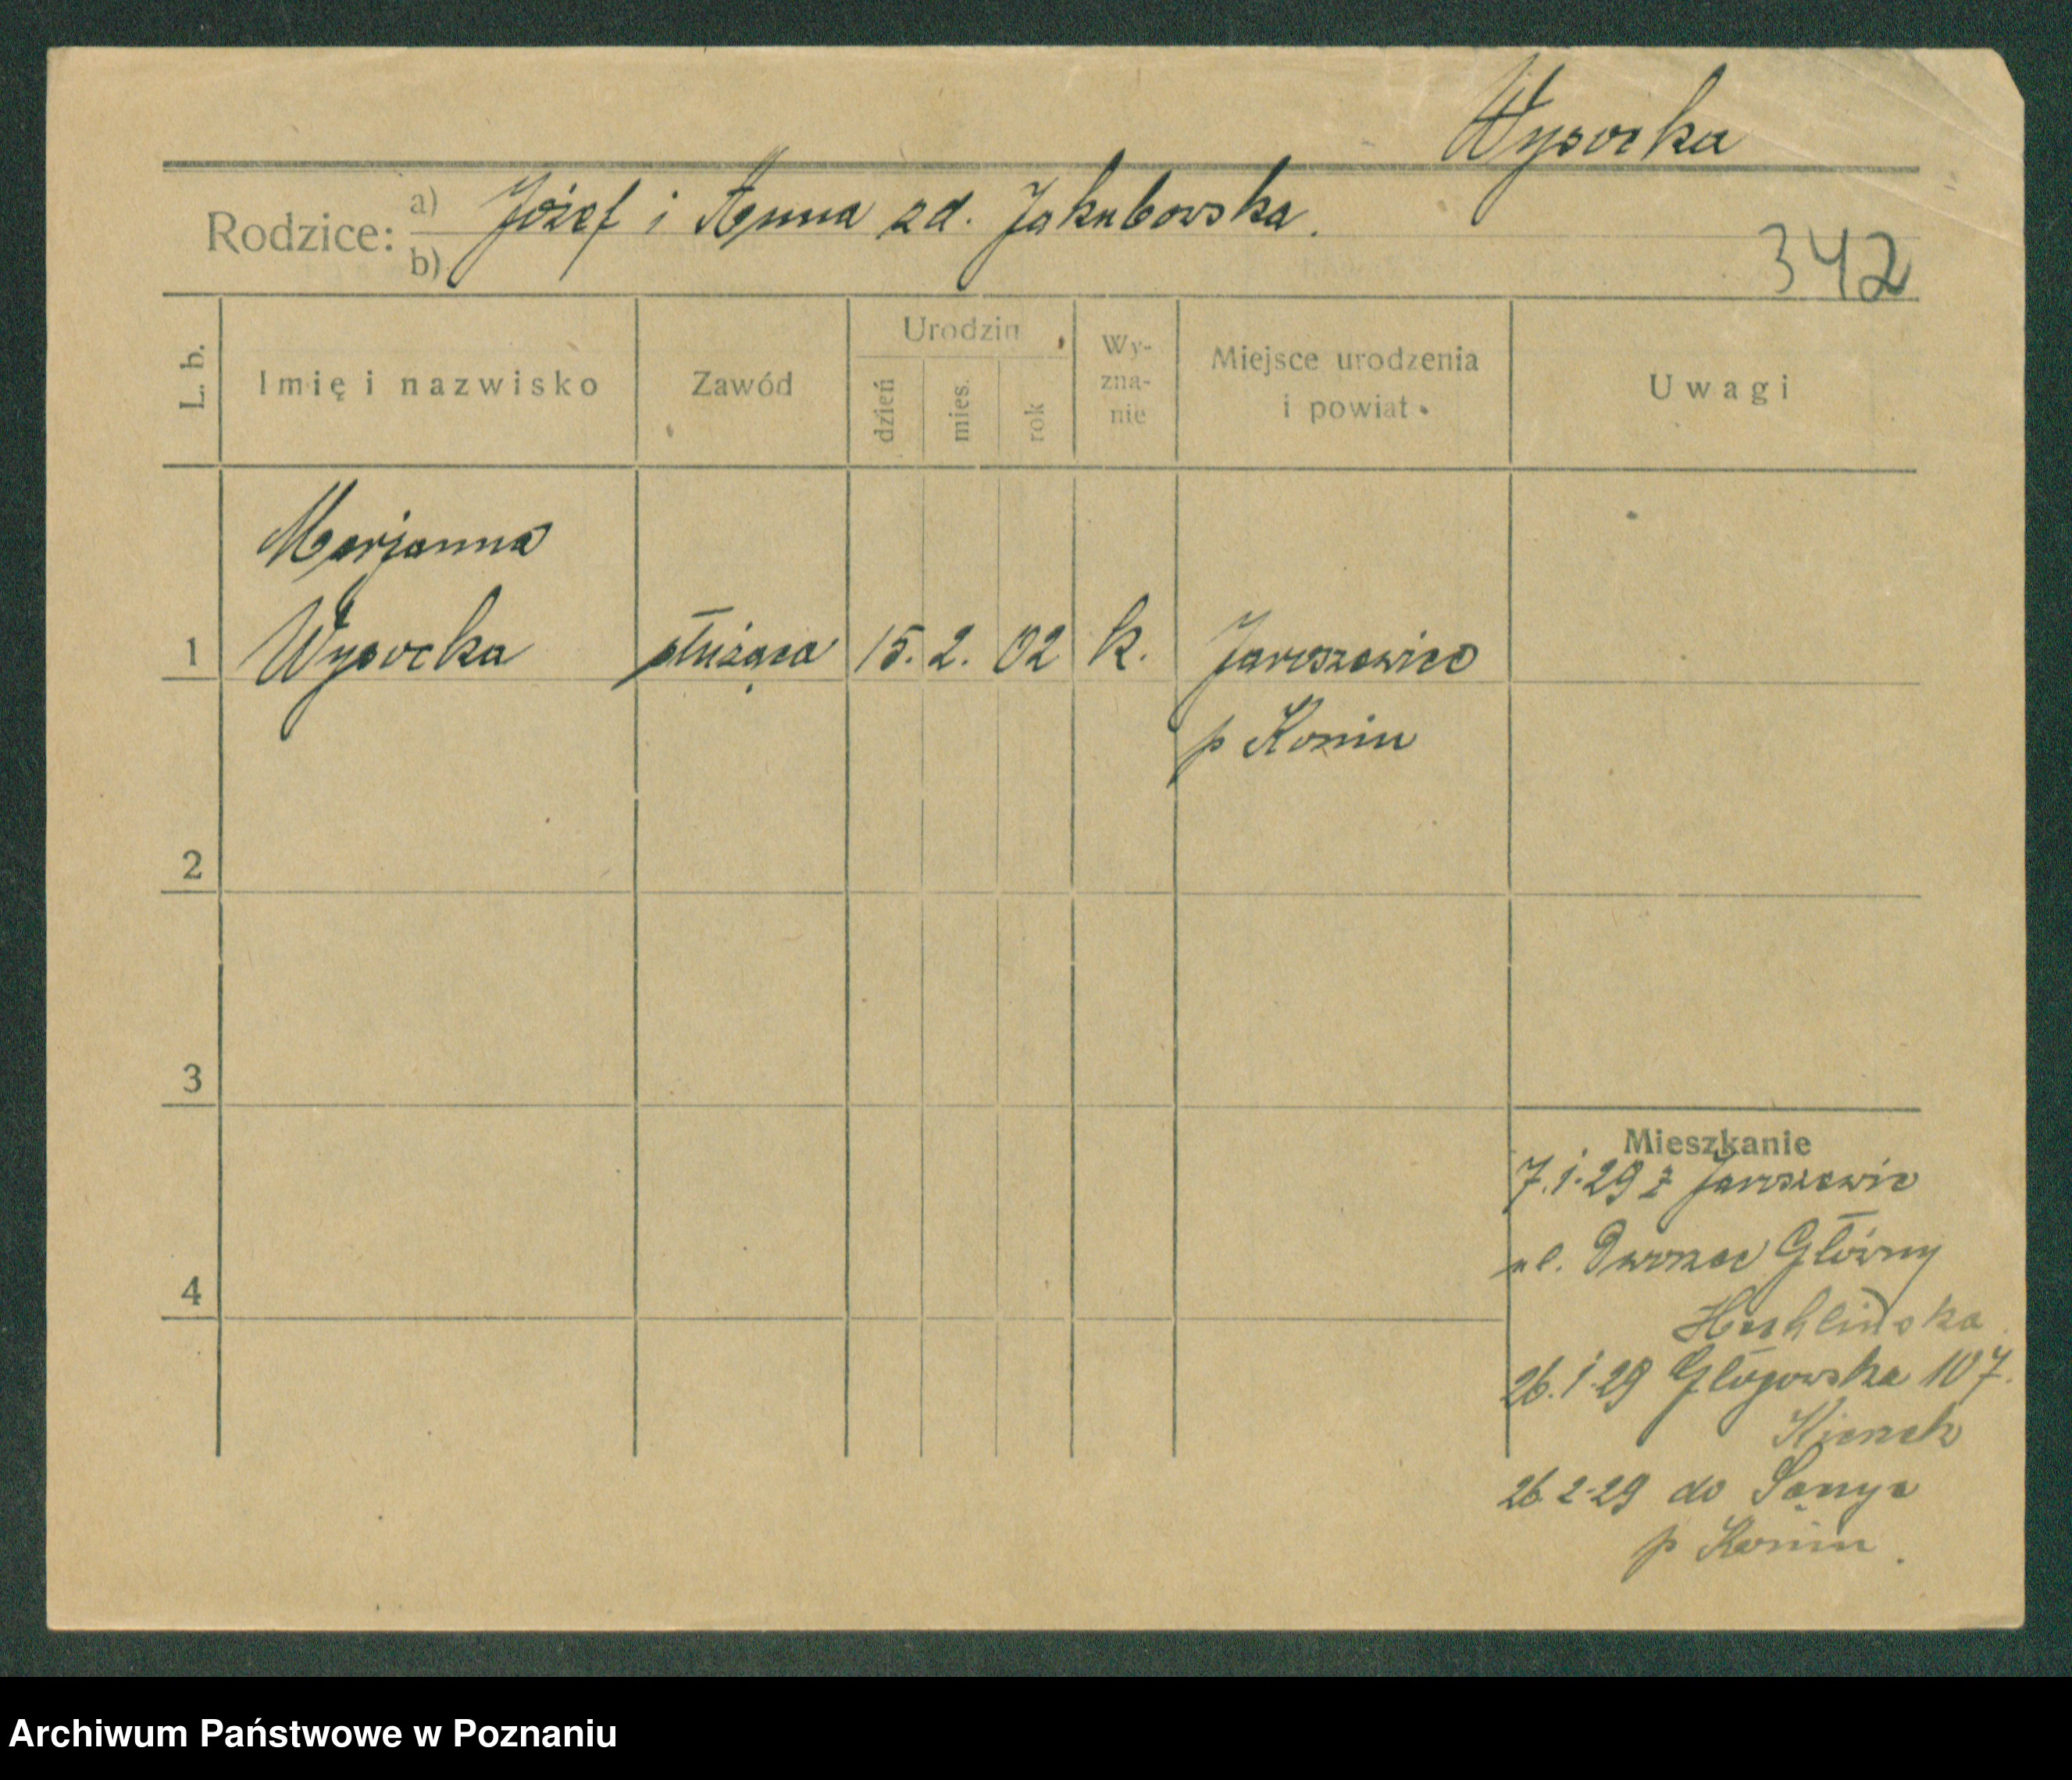 Wysocka
Rodzice: a) Józef i Anna zd. Jakubowska.
b)
342
L. b.
Imię i nazwisko
Zawód
Urodzin
dzień
mies.
rok
Wy-
zna-
nie
Miejsce urodzenia
i powiat
Uwagi
Marjanna
1 Wysocka służąca 15. 2. 02 k. Jaroszewice
p Konin
2
3
4
Mieszkanie
7.1.29 z Jaroszewic
ul. Dworzec Główny
26.1.29 Głogowska 107.
26.2.29 do
p Konin.
Archiwum Państwowe w Poznaniu